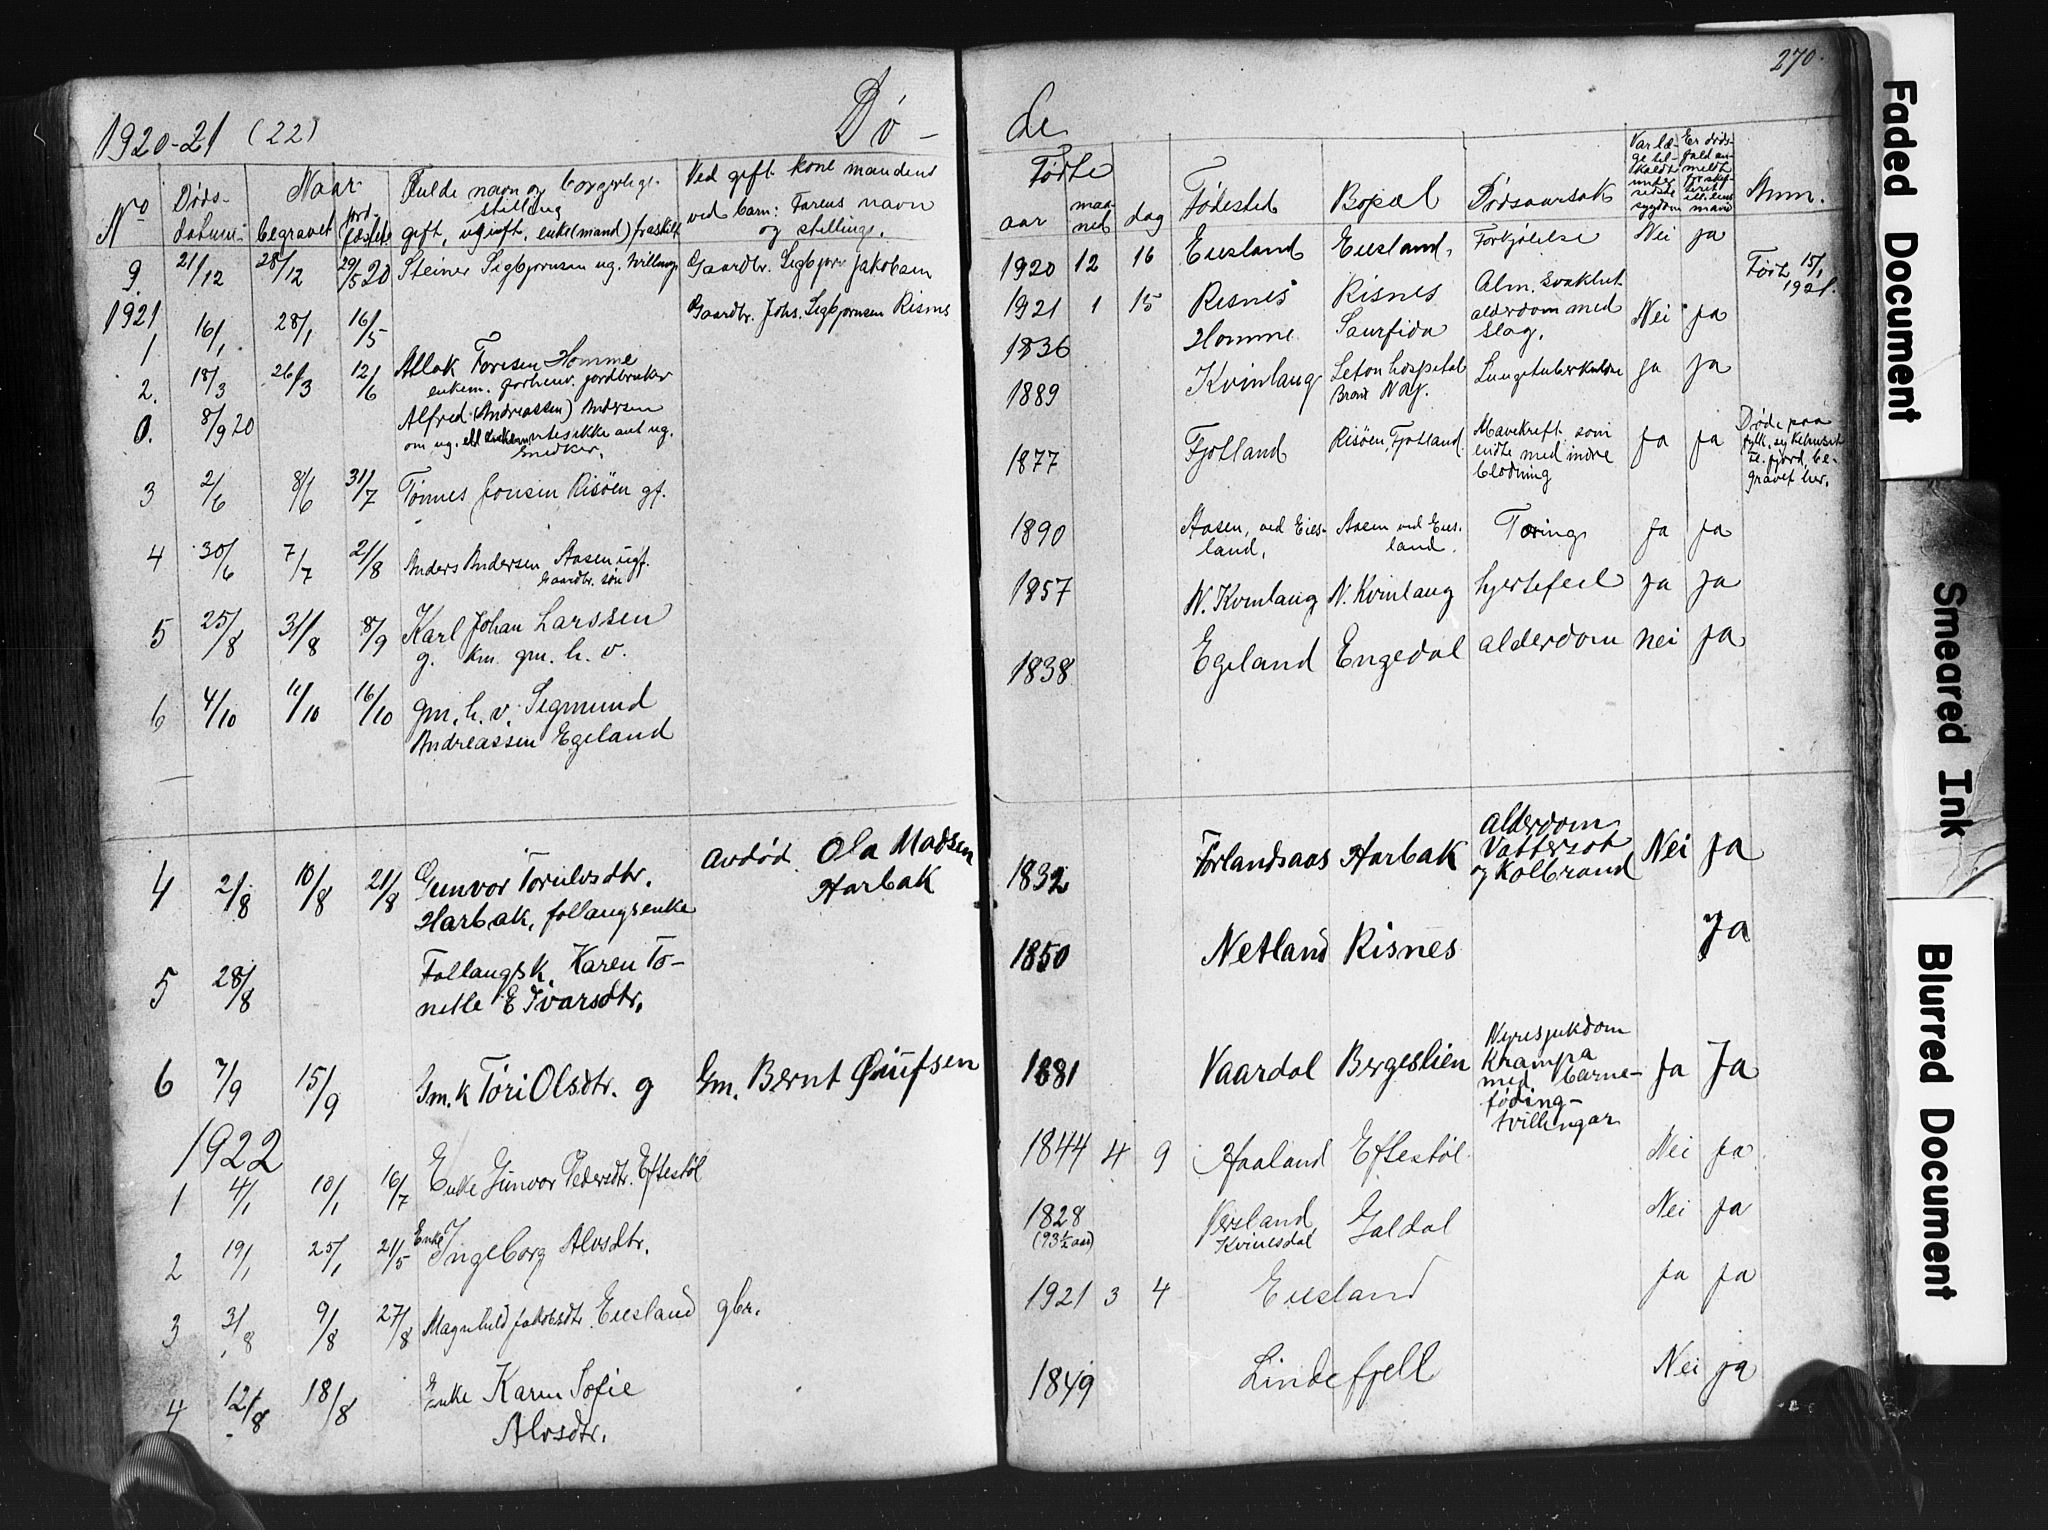 270.
1920-21 (22) Dø - de
No Døds- datum Naar begravet jord- fæstet Fulde navn og borgerlige stilling gift, ugift, enke(mand) fraskilt Ved gift kone mandens ved barn: Farens navn og stilling. Fødte aar maa- ned dag Fødested Bopæl Dødsaarsak Var læ- ge til- kaldt under sidste sygdom Er døds- fald an- meldt Anm.
9. 21/12 28/12 29/5 20 Steiner Sigbjørnsen ug. Gaardbr. Sigbjørn Jakobsen 1920 12 16 Eiesland Eiesland. Forkjølelse Nei ja
1921
1 16/1 28/1 16/5 Gaardbr. Johs. Sigbjørnsen Risnes 1921 1 15 Risnes Risnes Alm. svakhet Født 15/1 1921.
2. 18/3 26/3 12/6 Atlak Toresen Homme enkem. forhenv. jordbruker 1836 Homme Saurfida alderdom med slag. Nei Ja
0. 8/9 20 Alfred (Andreassen) Andersen om ug. ell enkem vites ikke ant ug. Snedker. 1889 Kvinlaug Seton hospital Bronx N.Y. Lungetuberkulose ja ja
3 2/6 8/6 31/7 Tønnes Jonsen Risöen gf. 1877 Fjotland Risöen, Fjotland Mavekreft som endte med indre blödning Ja ja Døde paa fylk. sykehuset Fl. fjord, be- gravet her.
4 30/6 7/7 21/8 Anders Andersen Aasen ugf. Gaardbr. søn 1890 Aasen, ved Eies- land, Aasen ved Eies- land. Tæring ja ja
5 25/8 31/8 8/9 Karl Johan Larssen g. km. gm. h. v. 1857 N. Kvinlaug N. Kvinlaug hjertefeil ja ja
6 4/10 11/10 16/10 gm. h. v. Sigmund Andreassen Egeland 1838 Egeland Engedal alderdom nei ja
4 2/8 10/8 21/8 Gunvor Torulvsdtr. Harbak, follaugsenke Avdød Ola Madsen Harbak 1832 Førlandsaas Harbak alderdom Vattersot og Kolbrand Nei Ja
5 28/8 Follaugsk. Karen To- nette E Ivarsdtr. 1850 Netland Risnes Ja
6 7/9 15/9 Gm.k Tóri Olsdtr. g Gm. Bernt 1881 Vaardal Bergeslien Nyresjukdom Krampa med barne- føding- tvillingar Ja Ja
1922
1 4/1 10/1 16/7 Enke Gunvor Pedersdtr. Eftestöl 1844 4 9 Haaland Eftestöl Nei ja
2 19/1 25/1 21/5 Enke Ingeborg Alvsdtr. 1828 (93½ aar) Kvinesdal Galdal Nei ja
3 31/8 9/8 27/8 Magnhild Jakobsdtr. Eiesland gbr. 1921 3 4 Eiesland Ja ja
4 12/8 18/8 Enke Karen Sofie Alvsdtr. 1849 Lindefjell Nei ja
Faded Document
Smeared Ink
Blurred Document